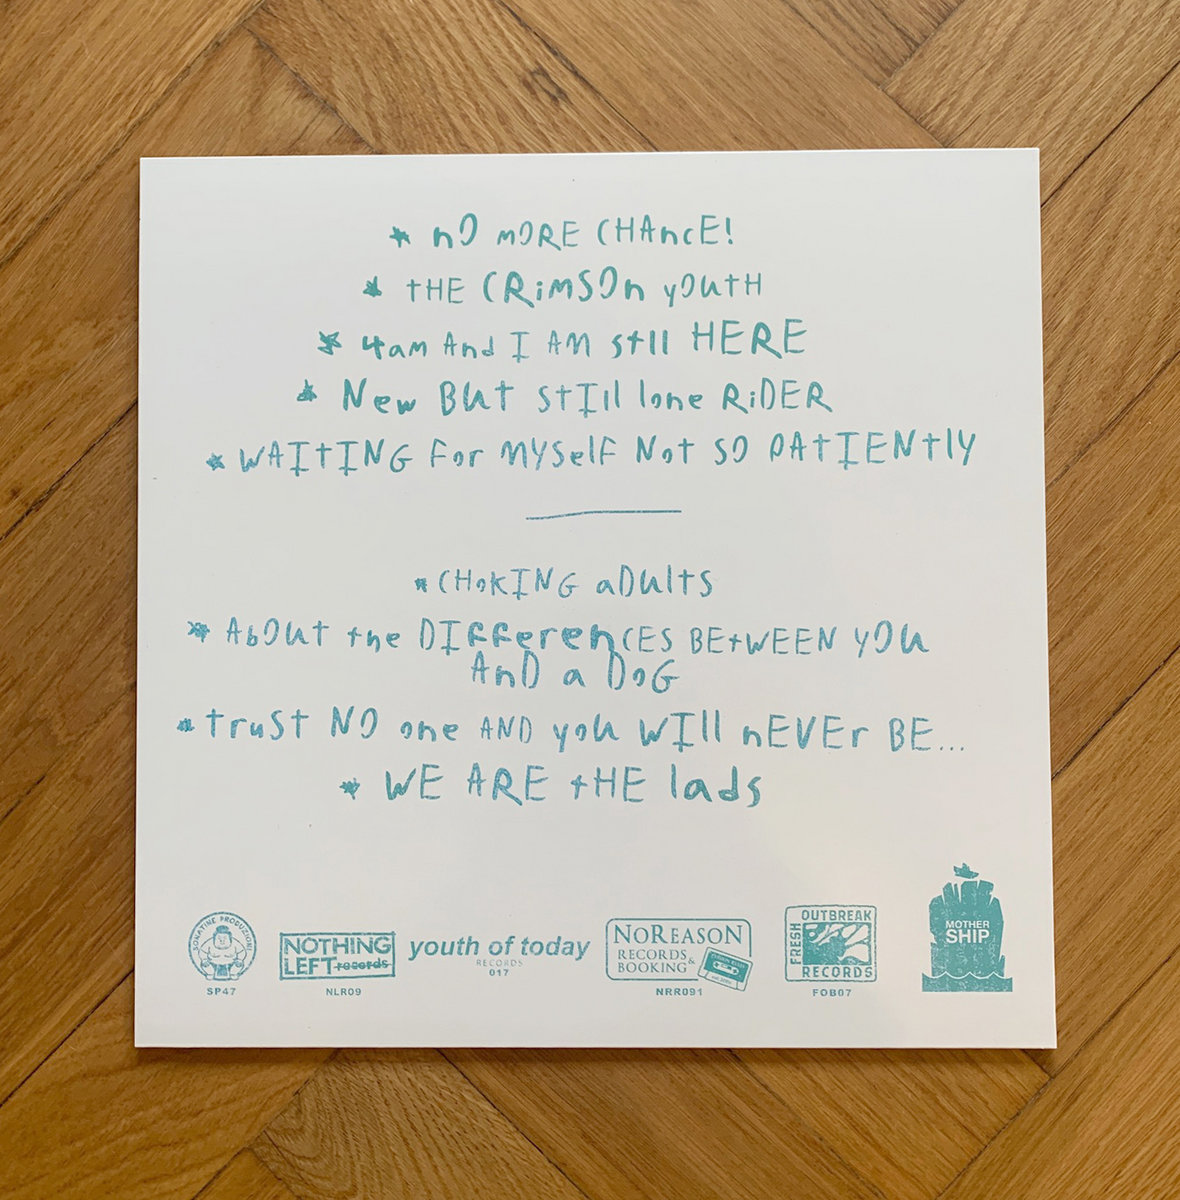 * nO mORE CHAncE!
* tHE CRiMSOn yOutH
* 4am And I AM still HERE
* New But StIll lone RiDER
* WAItING For MYSelF Not SO PAtIENtlY
* CHoKING aDultS
* AbOut the DIfferenCES BEtWEEN yOu
AnD a DoG
* truSt NO one AND you WIll nEVEr BE...
* WE ARE tHE lads
SONATINE PRODUZIONI
SP47
NOTHING
LEFT records
NLR09
youth of today
RECORDS
017
NOREASON
RECORDS &
BOOKING
NRR091
FRESH
OUTBREAK
RECORDS
FOB07
MOTHER
SHIP